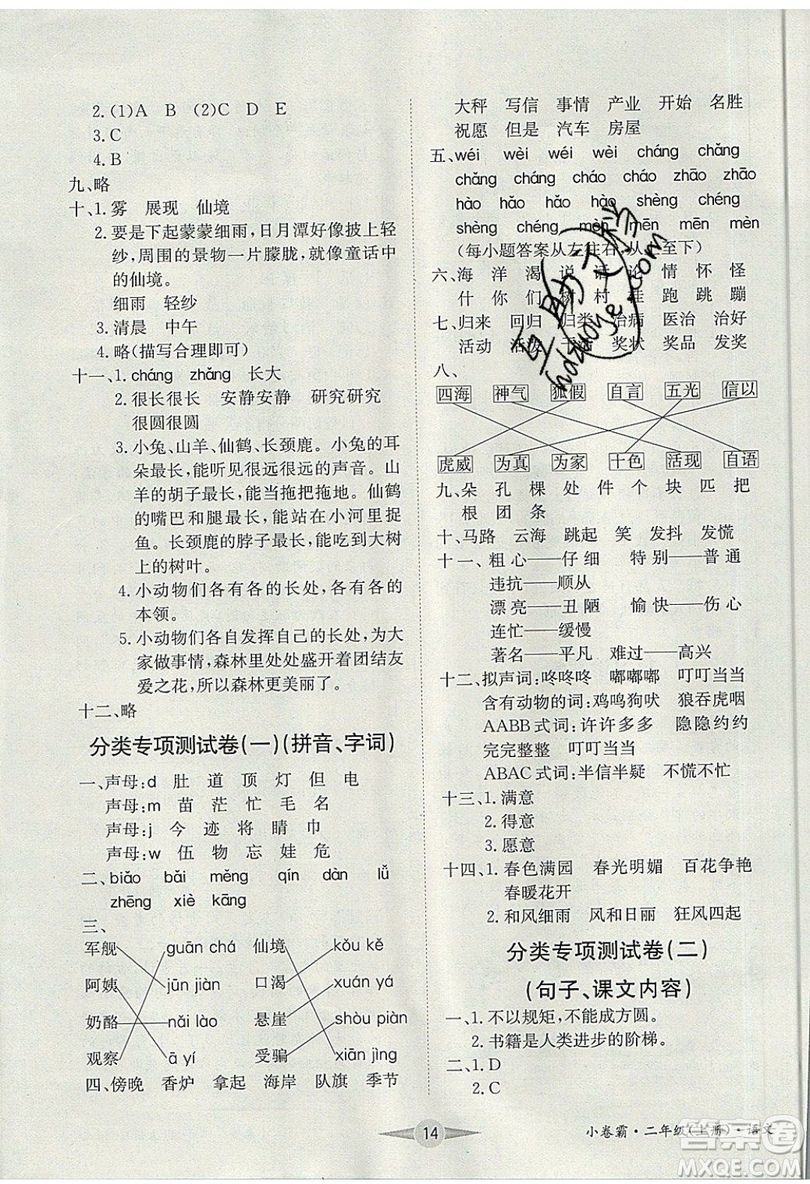 2. (1)A B (2)C D E
3. C
4. B
九、略
十、1. 雾 展现 仙境
2. 要是下起蒙蒙细雨，日月潭好像披上轻
纱，周围的景物一片朦胧，就像童话中
的仙境。
细雨 轻纱
3. 清晨 中午
4. 略(描写合理即可)
十一、1. cháng zhǎng 长大
2. 很长很长 安静安静 研究研究
很圆很圆
3. 小兔、山羊、仙鹤、长颈鹿。小兔的耳
朵最长，能听见很远很远的声音。山
羊的胡子最长，能当拖把拖地。仙鹤
的嘴巴和腿最长，能在小河里捉
鱼。长颈鹿的脖子最长，能吃到大树
上的树叶。
4. 小动物们各有各的长处，各有各的
本领。
5. 小动物们各自发挥自己的长处，为大
家做事情，森林里处处盛开着团结友
爱之花，所以森林更美丽了。
十二、略
分类专项测试卷(一)(拼音、字词)
一、声母：d 肚 道 顶 灯 但 电
声母：m 苗 茫 忙 毛 名
声母：j 今 迹 将 睛 巾
声母：w 伍 物 忘 娃 危
二、biǎo bǎi měng qín dàn lǚ
zhēng xiè kāng
三、
军舰 guān chá 仙境 kǒu kě
阿姨 jūn jiàn 口渴 xuán yá
奶酪 nǎi lào 悬崖 shòu piàn
观察 ā yí 受骗 xiān jìng
四、傍晚 香炉 拿起 海岸 队旗 季节
大秤 写信 事情 产业 开始 名胜
祝愿 但是 汽车 房屋
五、wéi wèi wéi wèi cháng chǎng
cháng chǎng cháng zhǎng
hào hǎo hào hǎo shèng chéng
shèng chéng mēn mèn mēn mèn
(每小题答案从左往右、从上至下)
六、海 洋 渴 说 话 论 情 怀 怪
什 你 们 树 村 桂 跑 跳 蹦
七、归来 回归 归类 治病 医治 治好
活动 活泼 干活 奖状 奖品 发奖
八、
四海 神气 狐假 自言 五光 信以
虎威 为真 为家 十色 活现 自语
九、朵 孔 棵 处 件 个 块 匹 把
根 团 条
十、马路 云海 跳起 笑 发抖 发慌
十一、粗心——仔细 特别——普通
违抗——顺从
漂亮——丑陋 愉快——伤心
连忙——缓慢
著名——平凡 难过——高兴
十二、拟声词：咚咚咚 嘟嘟嘟 叮叮当当
含有动物的词：鸡鸣狗吠 狼吞虎咽
AABB式词：许许多多 隐隐约约
完完整整 叮叮当当
ABAC式词：半信半疑 不慌不忙
十三、1. 满意
2. 得意
3. 愿意
十四、1. 春色满园 春光明媚 百花争艳
春暖花开
2. 和风细雨 风和日丽 狂风四起
分类专项测试卷(二)
(句子、课文内容)
一、1. 不以规矩，不能成方圆。
2. 书籍是人类进步的阶梯。
二、1. D
2. C
14
小卷霸·二年级(上册)·语文
答案圈
MXQE.COM